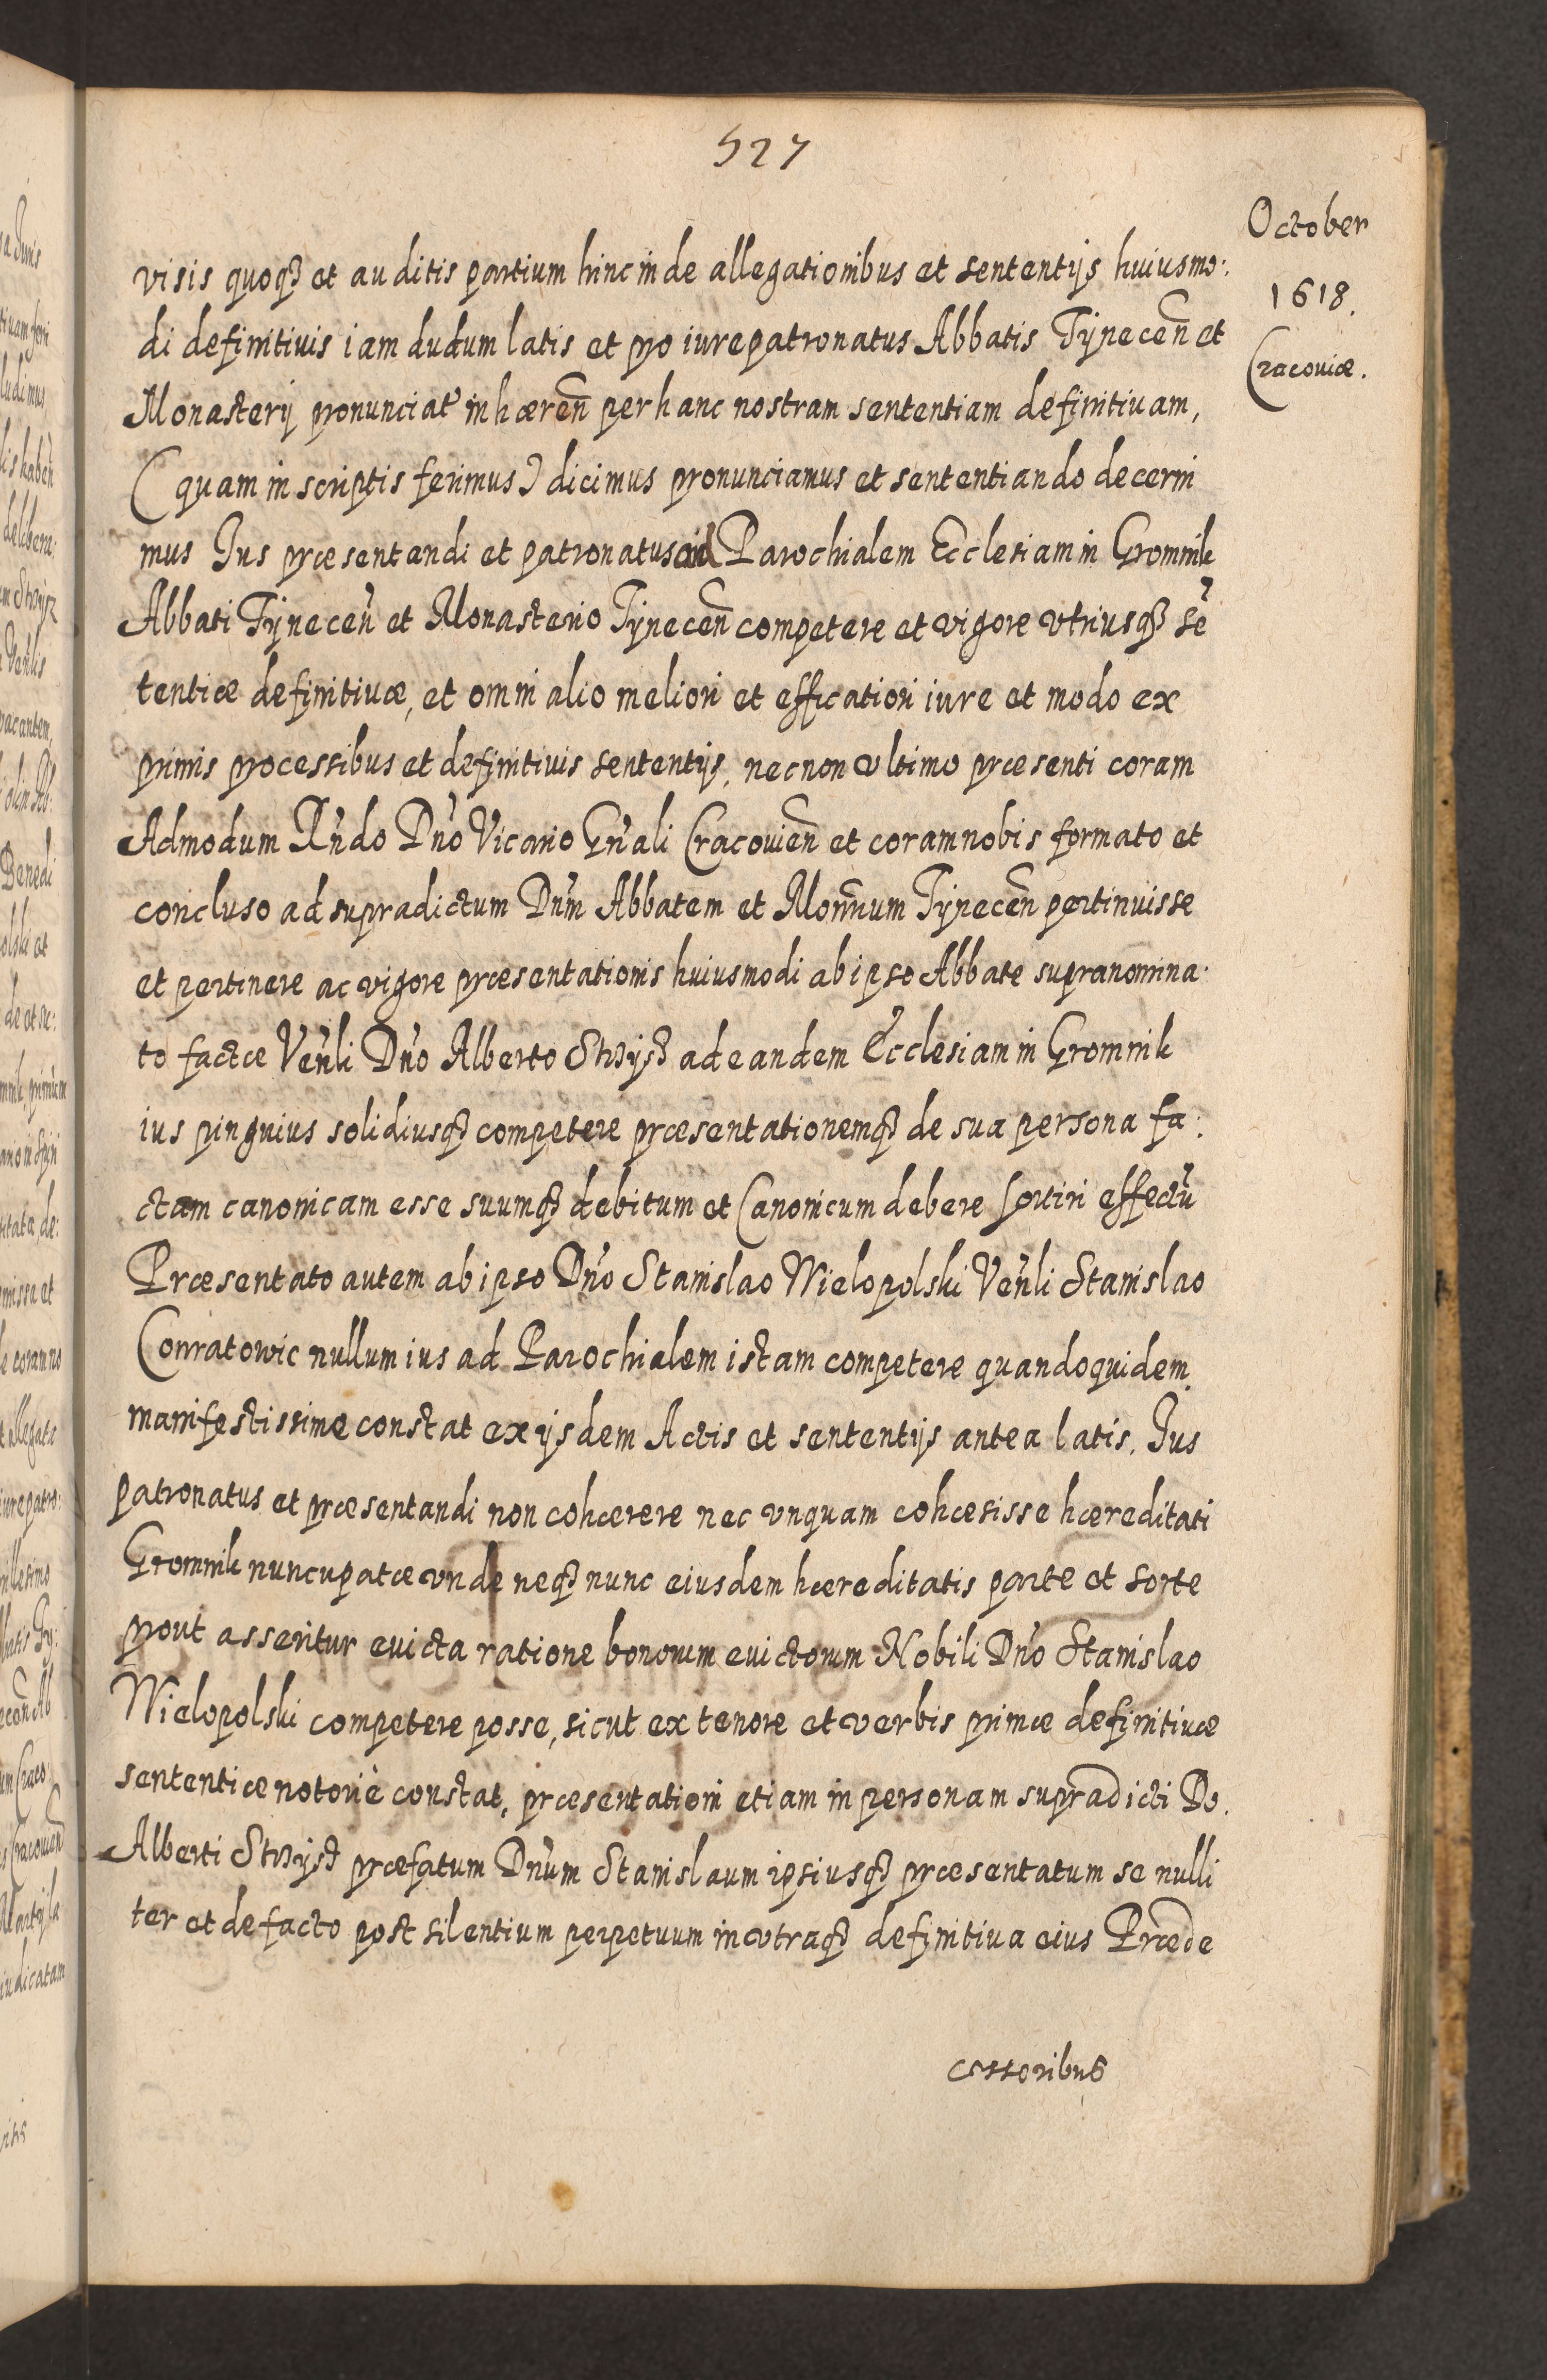 527
October
1618.
Cracouiæ.
visis quoq3 et auditis partium hinc inde allegationibus et sententijs huiusmo:
di definitiuis iam dudum latis et pro iure patronatus Abbatis Tÿnecen̄ et
Monasterij pronunciat' inhæren̄ per hanc nostram sententiam definitiuam,
(quam in scriptis ferimus) dicimus pronunciamus et sententiando decerni
mus Jus præsentandi et patronatus ad Parochialem Ecclesiam in Gromnik
Abbati Tÿnecen̄ et Monasterio Tÿnecen̄ competere et vigore vtriusq3 sē
tentiæ definitiuæ, et omni alio meliori et efficatiori iure et modo ex
primis processibus et definitiuis sententijs, nec non vltimo præsenti coram
Admodum Rn̄do Dn̄o Vicario Gn̄ali Cracouien̄ et coram nobis formato et
concluso ad supradictum Dn̄m Abbatem et Mon̄rium Tÿnecen̄ pertinuisse
et pertinere ac vigore præsentationis huiusmodi ab ipso Abbate supranomina:
to factæ Ven̄li Dn̄o Alberto ad eandem Ecclesiam in Gromnik
ius pinguius solidiusq3 competere præsentationemq3 de sua persona fa:
ctam canonicam esse suumq3 debitum et Canonicum debere sortiri effectū
Præsentato autem ab ipso Dn̄o Stanislao Wielopolski Ven̄li Stanislao
Conratowic nullum ius ad Parochialem istam competere quandoquidem
manifestissime constat ex ijsdem Actis et sententijs antea latis, Jus
patronatus et præsentandi non cohærere nec vnquam cohæsisse hæreditati
Gromnik nuncupatæ vnde neq3 nunc eiusdem hæreditatis parte et sorte
prout asseritur euicta ratione bonorum euictorum Nobili Dn̄o Stanislao
Wielopolski competere posse, sicut ex tenore et verbis primæ definitiuæ
sententiæ notoriè constat, præsentationi etiam in personam supradicti Do.
Alberti præfatum Dn̄um Stanislaum ipsiusq3 præsentatum se nulli
ter et de facto post silentium perpetuum in vtraq3 definitiua eius Præde
cessoribus